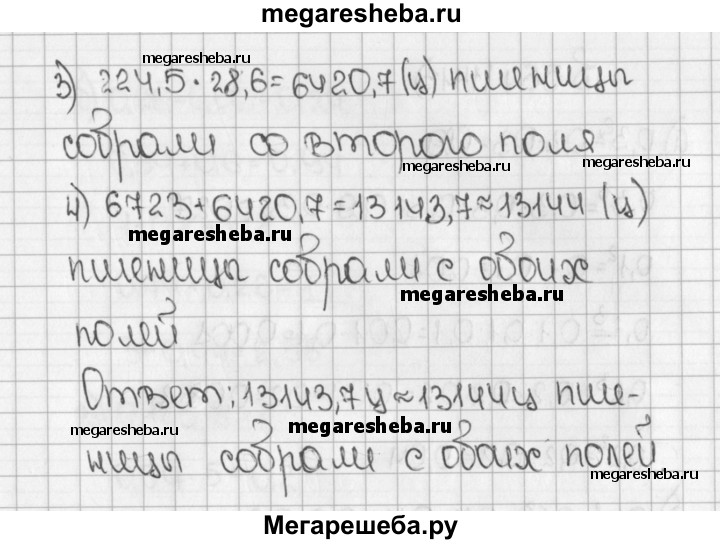 megaresheba.ru
megaresheba.ru
3) 224,5 · 28,6 = 6420,7 (ц) пшеницы
собрали со второго поля
megaresheba.ru megaresheba.ru
4) 6723 + 6420,7 = 13143,7 ≈ 13144 (ц)
megaresheba.ru
пшеницы собрали с обоих
megaresheba.ru
полей
Ответ: 13143,7 ц ≈ 13144 ц пше-
megaresheba.ru megaresheba.ru
ницы собрали с обоих полей
megaresheba.ru
Мегарешеба.ру